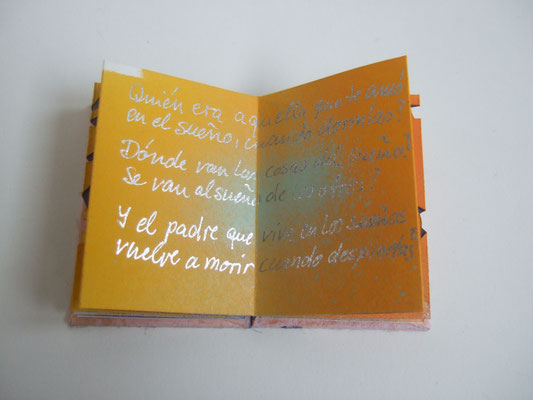 Quién era aquella que te amó
en el sueño, cuando dormías?
Dónde van las cosas del sueño?
Se van al sueño de los otros?
Y el padre que vive en los sueños
vuelve a morir cuando despiertas?